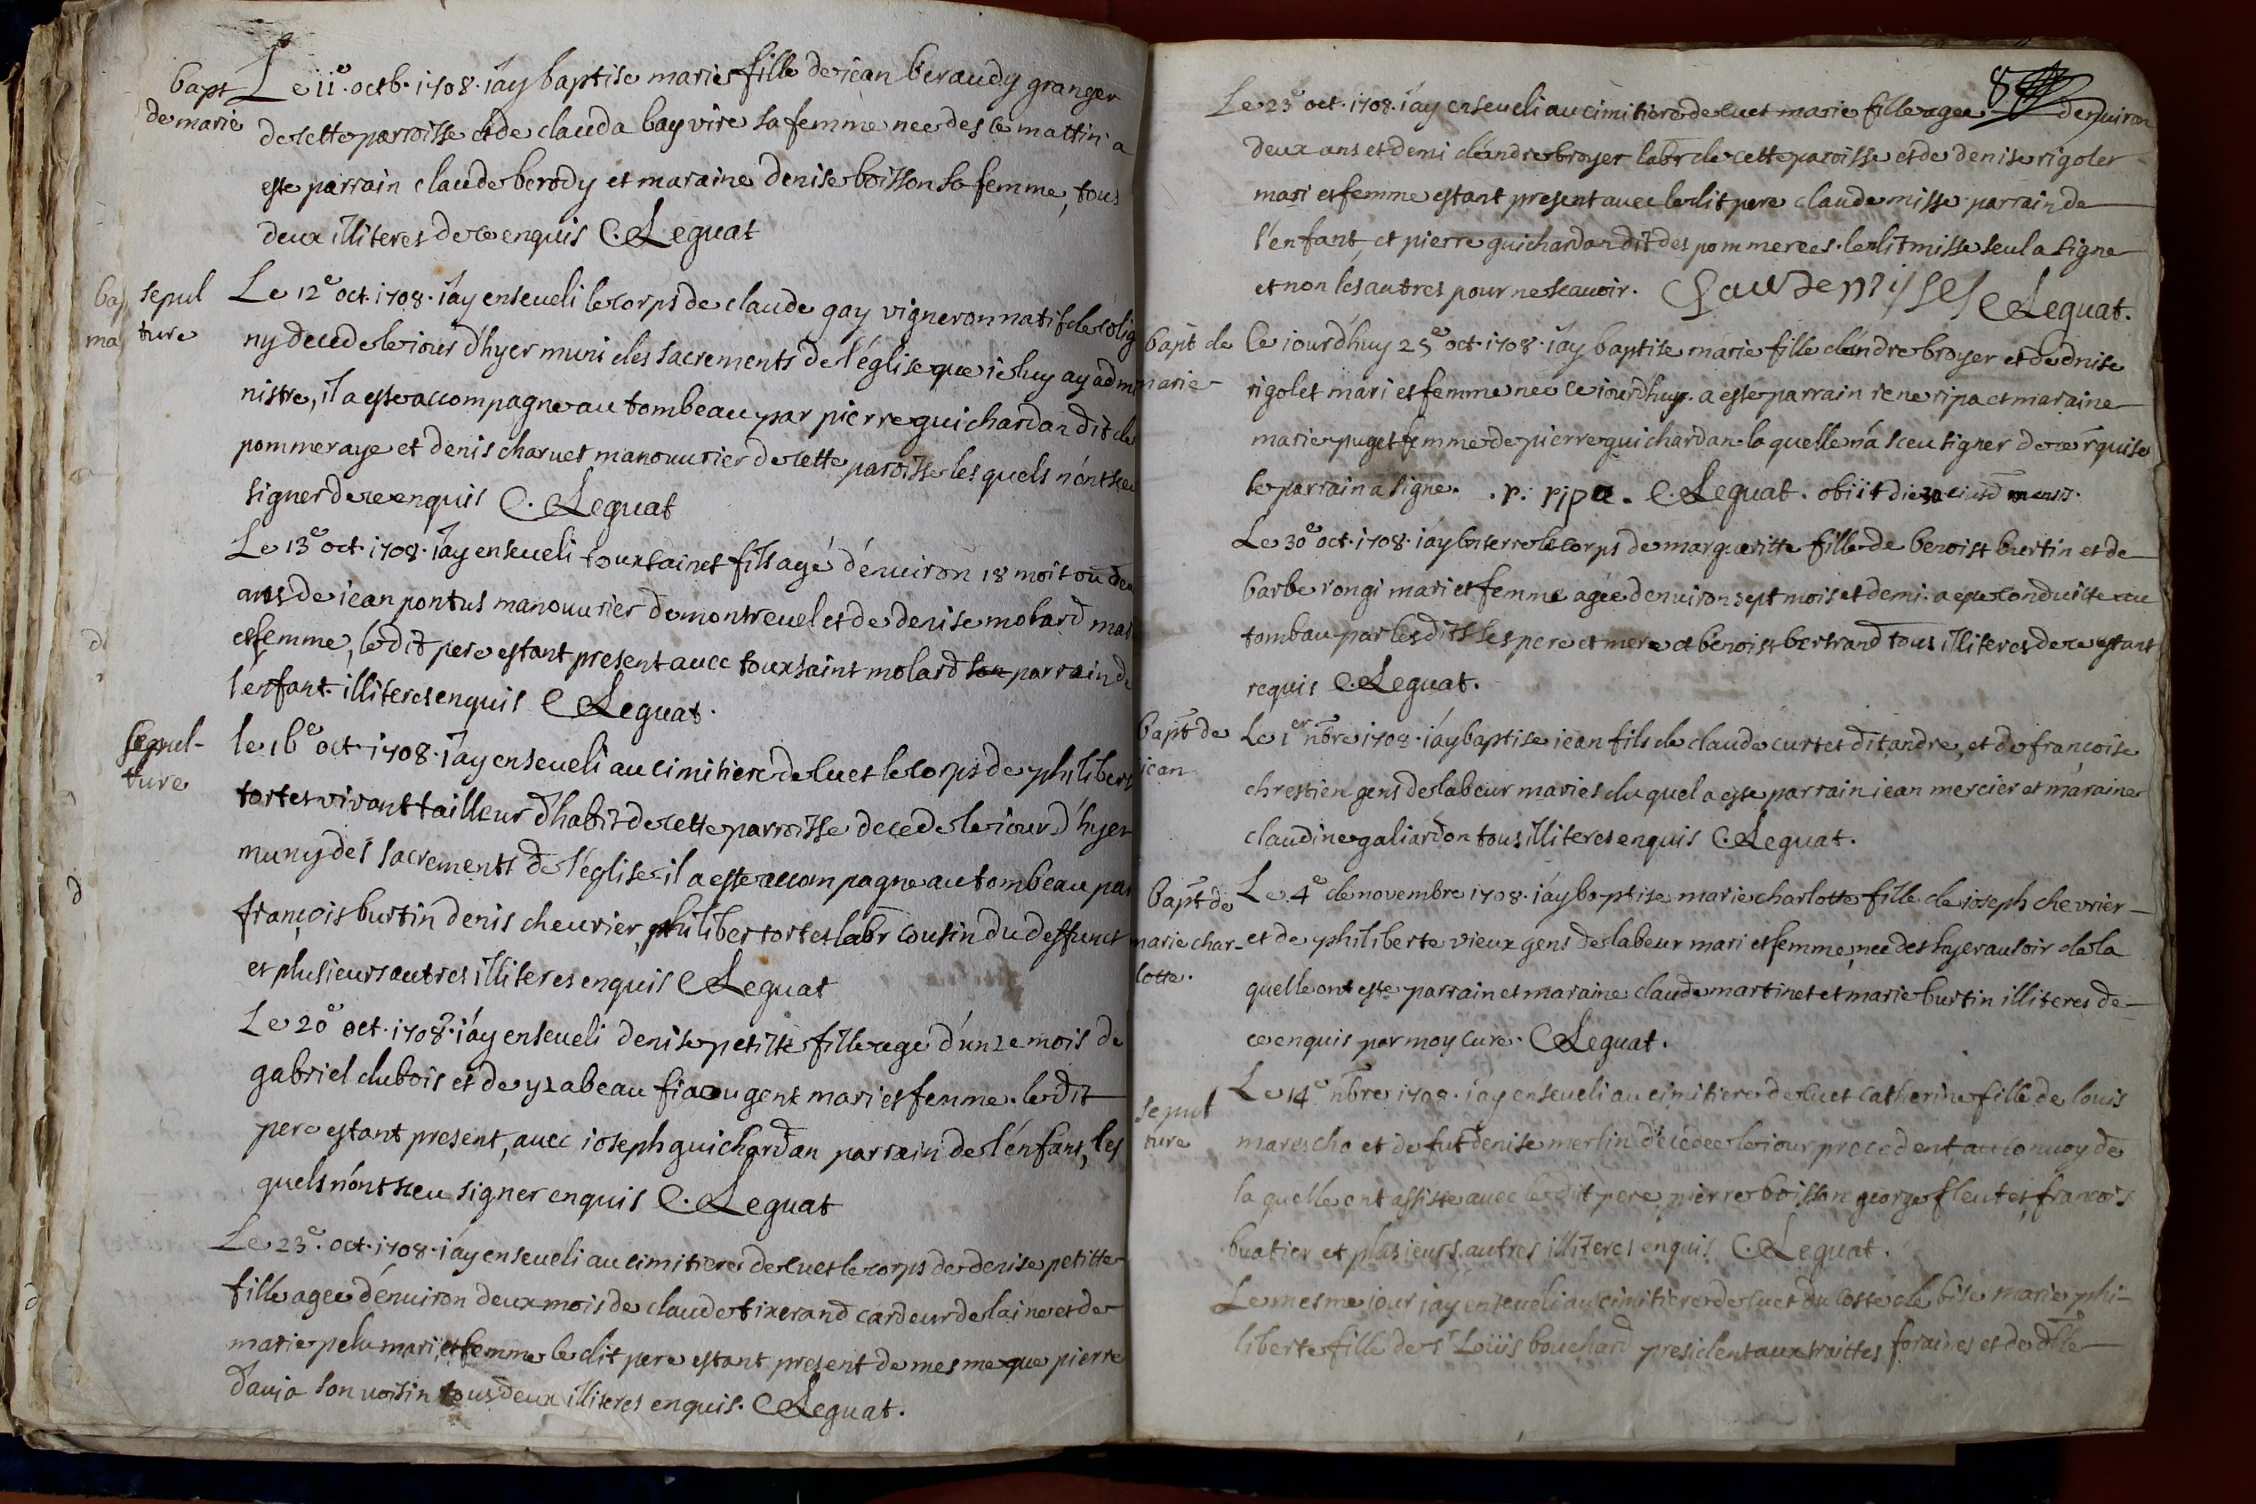 bapt
de marie
Le 11e. octb. 1708. iay baptise marie fille de iean beraudy granger
de cette parroisse et de clauda bayvire sa femme nee des ce mattin a
este parrain claude berody et maraine denise boisson sa femme, tous
deux illiteres de ce enquis C. Leguat
sepul
ture
Le 12e oct. 1708. iay enseueli le corps de claude gay vigneron natif de colig
ny decede le iour d'hyer muni des sacrements de l'église que ie luy ay admi
nistre, il a este accompagne au tombeau par pierre guichardan dit de
pommeraye et denis charuet manouurier de cette paroisse les quels n'ont sceu
signer de ce enquis C. Leguat
Le 13e oct. 1708. iay enseueli touxsainct fils agé d'enuiron 18 mois ou deu
ans de iean pontus manouurier de montreuel et de denise molard mar
et femme, le dit pere estant present auec touxsaint molard parrain de
l'enfant illiteres enquis C Leguat.
sepul-
ture
le 16e oct. 1708. iay enseueli au cimitiere de cuet le corps de philibert
tortet vivant tailleur d'habit de cette parroisse decede le iour d'hyer
muny des sacrements de l'église il a este accompagne au tombeau par
françois burtin denis cheurier, philiber tortet labr cousin du deffunct
et plusieurs autres illiteres enquis C Leguat
Le 20e oct. 1708. i'ay enseueli denise petitte fille age d'unze mois de
gabriel dubois et de yzabeau mari et femme. le dit
pere estant present, auec ioseph guichardan parrain de l'enfant, les
quels n'ont sceu signer enquis C. Leguat
Le 23e. oct. 1708. iay enseueli au cimitiere de cuet le corps de denise petitte
fille agee d'enuiron deux mois de claude tixerand cardeur de laine et de
marie pelu mari et femme le dit pere estant present de mesme que pierre
dauja son voisin tous deux illiteres enquis. C Leguat.
8
Le 23e oct. 1708. i'ay enseueli au cimitiere de cuet marie fille agee denuiron
deux ans et demi d'andre broyer labr de cette paroisse et de denise rigolet
mari et femme estant present auec le dit pere claude misse parrain de
l'enfant, et pierre guichardan dit des pommerees. le dit misse seul a signe
et non les autres pour ne scauoir. Claude misse C Leguat.
bapt de
marie
Ce iourd'huy 25e oct. 1708. iay baptise marie fille d'andre broyer et de dnise
rigolet mari et femme nee ce iourdhuy. a este parrain rene ripa et maraine
marie puget femme de pierre guichardan la quelle n'a sceu signer de ce rquise
le parrain a signe. .r. ripa. C. Leguat. obiit die 30 eiusd mensis.
Le 30e oct. 1708. iay enserre le corps de margueritte fille de benoist burtin et de
barbe rongi mari et femme agée denuiron sept mois et demi. a este conduitte au
tombau par les dits les pere et mere et benoist bertrand tous illiteres de ce estant
requis C. Leguat.
bapt de
iean
Le 1er nbre 1708. i'ay baptise iean fils de claude curtet dit andre, et de françoise
chrestien gens de labeur maries du quel a este parrain iean mercier et maraine
claudine galiardon tous illiteres enquis C. Leguat.
bapt de
marie char-
lotte.
Le 4e de novembre 1708. iay baptise marie charlotte fille de ioseph chevrier
et de philiberte vieux gens de labeur mari et femme, nee des hyer au soir de la
quelle ont este parrain et maraine claude martinet et marie burtin illiteres de
ce enquis par moy cure. C Leguat.
sepul
ture
Le 14e nbre 1708. i'ay enseueli au cimitiere de cuet catherine fille de louis
marescha et de fut denise merlin decedee le iour precedent au conuoy de
la quelle ont assiste auec le dit pere pierre boisson george fleutet, françois
buatier et plusieurs autres illiteres enquis C. Leguat.
Le mesme iour i'ay enseueli au cimitiere de cuet du costé de bise marie phi-
liberte fille de sr Loüis bouchard president aux traittes foraines et de dlle